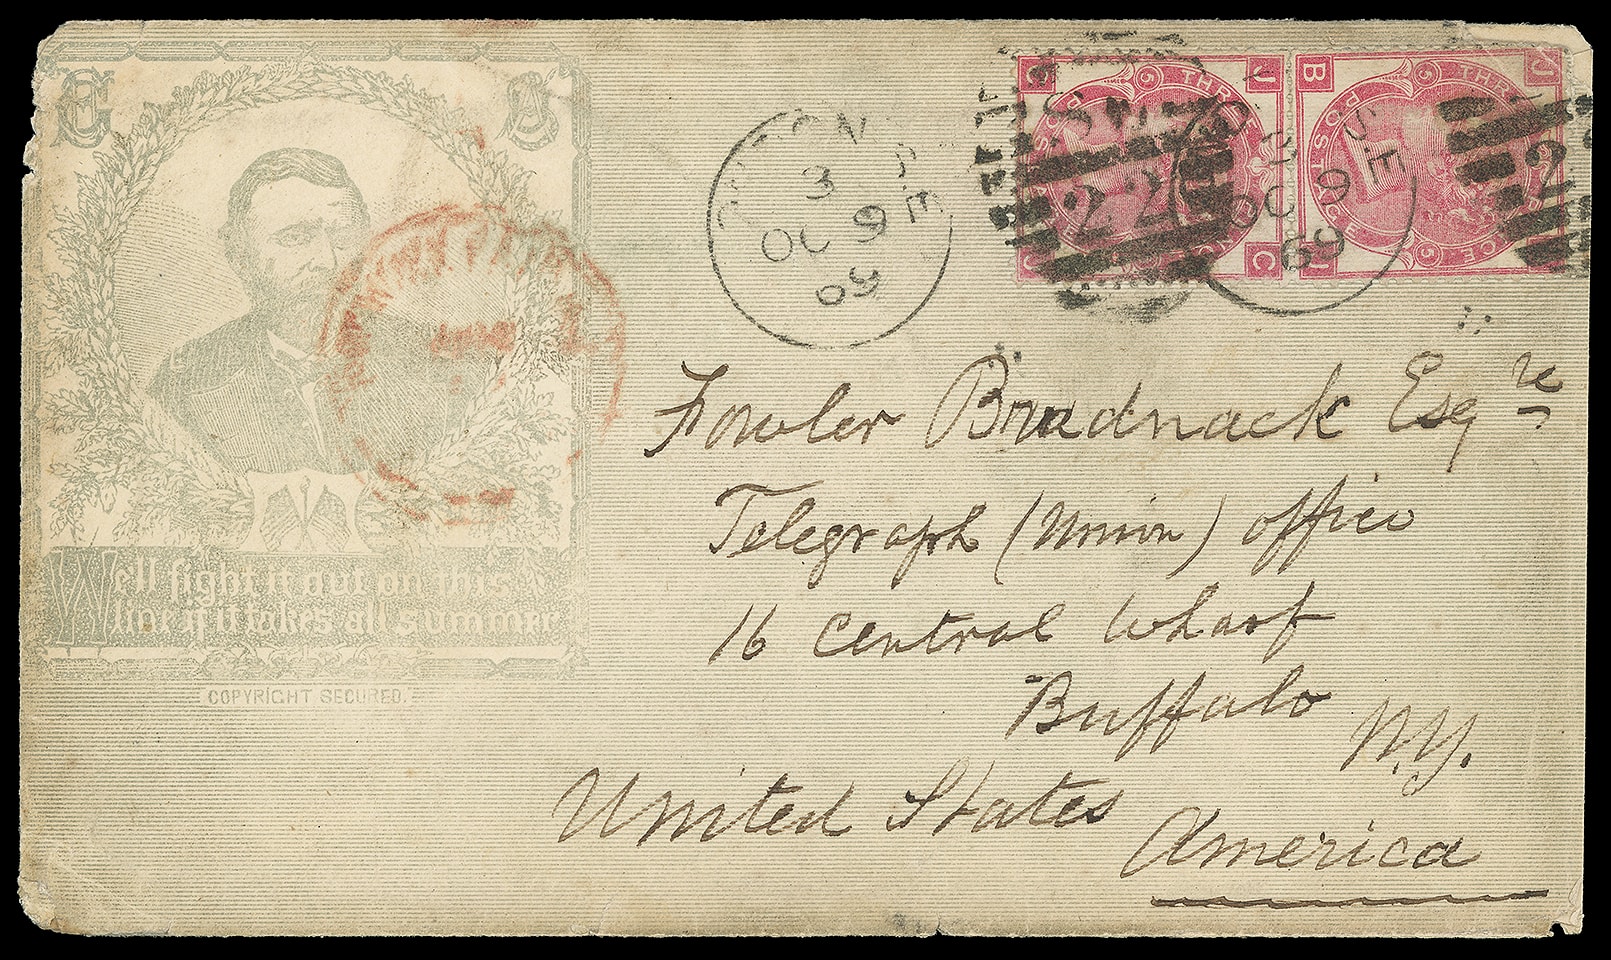 We'll fight it out on this
Line if it takes all summer
COPYRIGHT SECURED.
3
OC 9
69
S.E.
OC 9
69
22
2
THR
POSTAGE
J
C
B
J
Fowler Bradnack Esqre
Telegraph (Union) office
16 Central Wharf
Buffalo N.Y.
United States
America